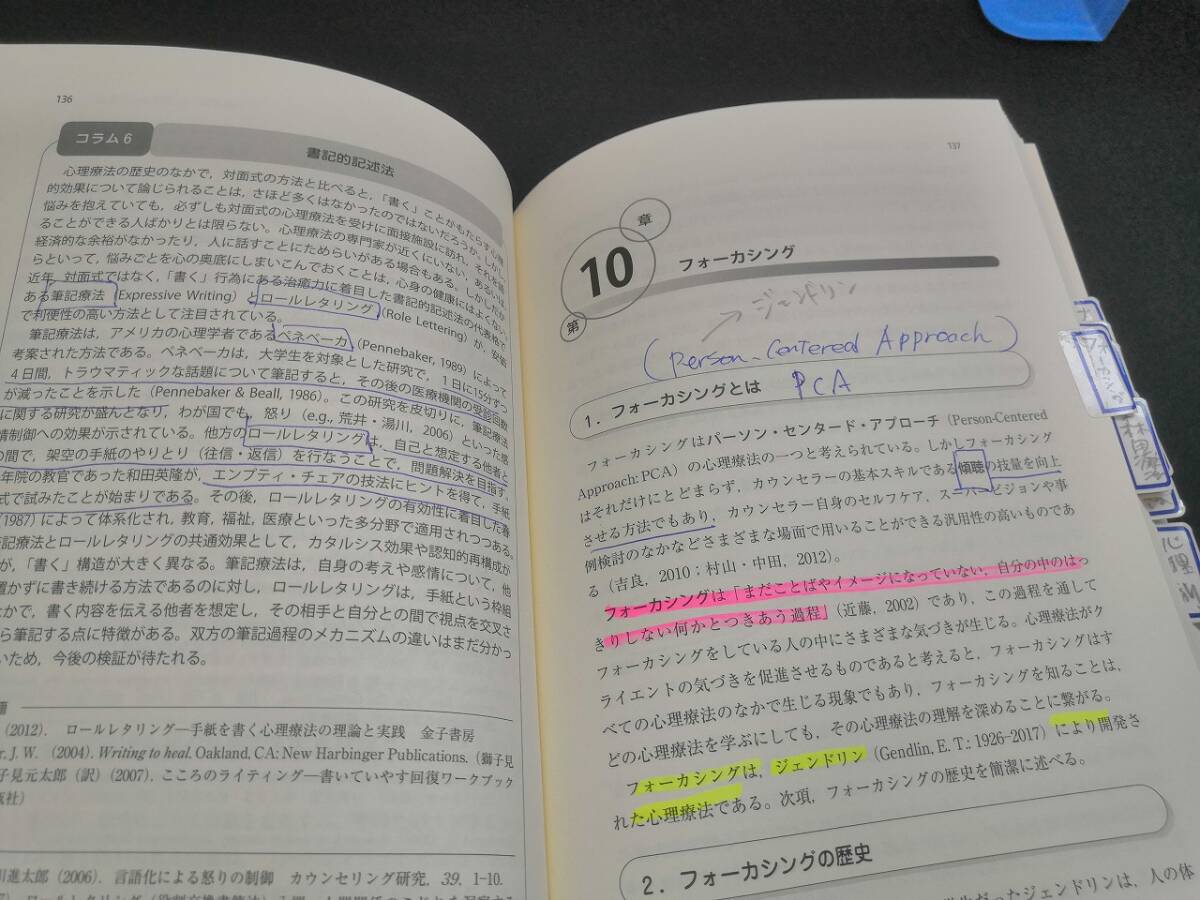 136
コラム 6
書記的記述法
心理療法の歴史のなかで，対面式の方法と比べると，「書く」ことがもたらす心理
的効果について論じられることは，さほど多くはなかったのではないだろうか。しかし，
悩みを抱えていても，必ずしも対面式の心理療法を受けに面接施設に訪れ，それを語
ることができる人ばかりとは限らない。心理療法の専門家が近くにいない，あるいは
経済的な余裕がなかったり，人に話すことにためらいがある場合もある。しかしだか
らといって，悩みごとを心の奥底にしまいこんでおくことは，心身の健康にはよくない。
近年，対面式ではなく，「書く」行為にある治癒力に着目した書記的記述法の代表格で
ある筆記療法（Expressive Writing）とロールレタリング（Role Lettering）が，安価
で利便性の高い方法として注目されている。
筆記療法は，アメリカの心理学者であるペネベーカ（Pennebaker, 1989）によって
考案された方法である。ペネベーカは，大学生を対象とした研究で，1日に15分ずつ
4日間，トラウマティックな話題について筆記すると，その後の医療機関の受診回数
が減ったことを示した（Pennebaker & Beall, 1986）。この研究を皮切りに，筆記療法
に関する研究が盛んとなり，わが国でも，怒り（e.g., 荒井・湯川，2006）といった感
情制御への効果が示されている。他方のロールレタリングは，自己と想定する他者と
の間で，架空の手紙のやりとり（往信・返信）を行なうことで，問題解決を目指す。
年院の教官であった和田英隆が，エンプティ・チェアの技法にヒントを得て，手紙
式で試みたことが始まりである。その後，ロールレタリングの有効性に着目した春
(1987）によって体系化され，教育，福祉，医療といった多分野で適用されつつある。
記療法とロールレタリングの共通効果として，カタルシス効果や認知的再構成が
が，「書く」構造が大きく異なる。筆記療法は，自身の考えや感情について，他
置かずに書き続ける方法であるのに対し，ロールレタリングは，手紙という枠組
なかで，書く内容を伝える他者を想定し，その相手と自分との間で視点を交叉さ
ら筆記する点に特徴がある。双方の筆記過程のメカニズムの違いはまだ分かっ
いため，今後の検証が待たれる。
(2012). ロールレタリング―手紙を書く心理療法の理論と実践 金子書房
r, J. W. (2004). Writing to heal. Oakland, CA: New Harbinger Publications.（獅子見
子見元太郎（訳）(2007). こころのライティング―書いていやす回復ワークブック
版社）
川進太郎（2006）. 言語化による怒りの制御 カウンセリング研究, 39, 1-10.
137
第 10 章
フォーカシング
ジェンドリン
(Person-Centered Approach)
PCA
1．フォーカシングとは
フォーカシングはパーソン・センタード・アプローチ（Person-Centered
Approach: PCA）の心理療法の一つと考えられている。しかしフォーカシング
はそれだけにとどまらず，カウンセラーの基本スキルである傾聴の技量を向上
させる方法でもあり，カウンセラー自身のセルフケア，スーパービジョンや事
例検討のなかなどさまざまな場面で用いることができる汎用性の高いものであ
る（吉良，2010；村山・中田，2012）。
フォーカシングは「まだことばやイメージになっていない，自分の中のはっ
きりしない何かとつきあう過程」（近藤，2002）であり，この過程を通して
フォーカシングをしている人の中にさまざまな気づきが生じる。心理療法がク
ライエントの気づきを促進させるものであると考えると，フォーカシングはす
べての心理療法のなかで生じる現象でもあり，フォーカシングを知ることは，
どの心理療法を学ぶにしても，その心理療法の理解を深めることに繋がる。
フォーカシングは，ジェンドリン（Gendlin, E. T.: 1926-2017）により開発さ
れた心理療法である。次項，フォーカシングの歴史を簡潔に述べる。
2．フォーカシングの歴史
だったジェンドリンは，人の体
フォーカシング
心理